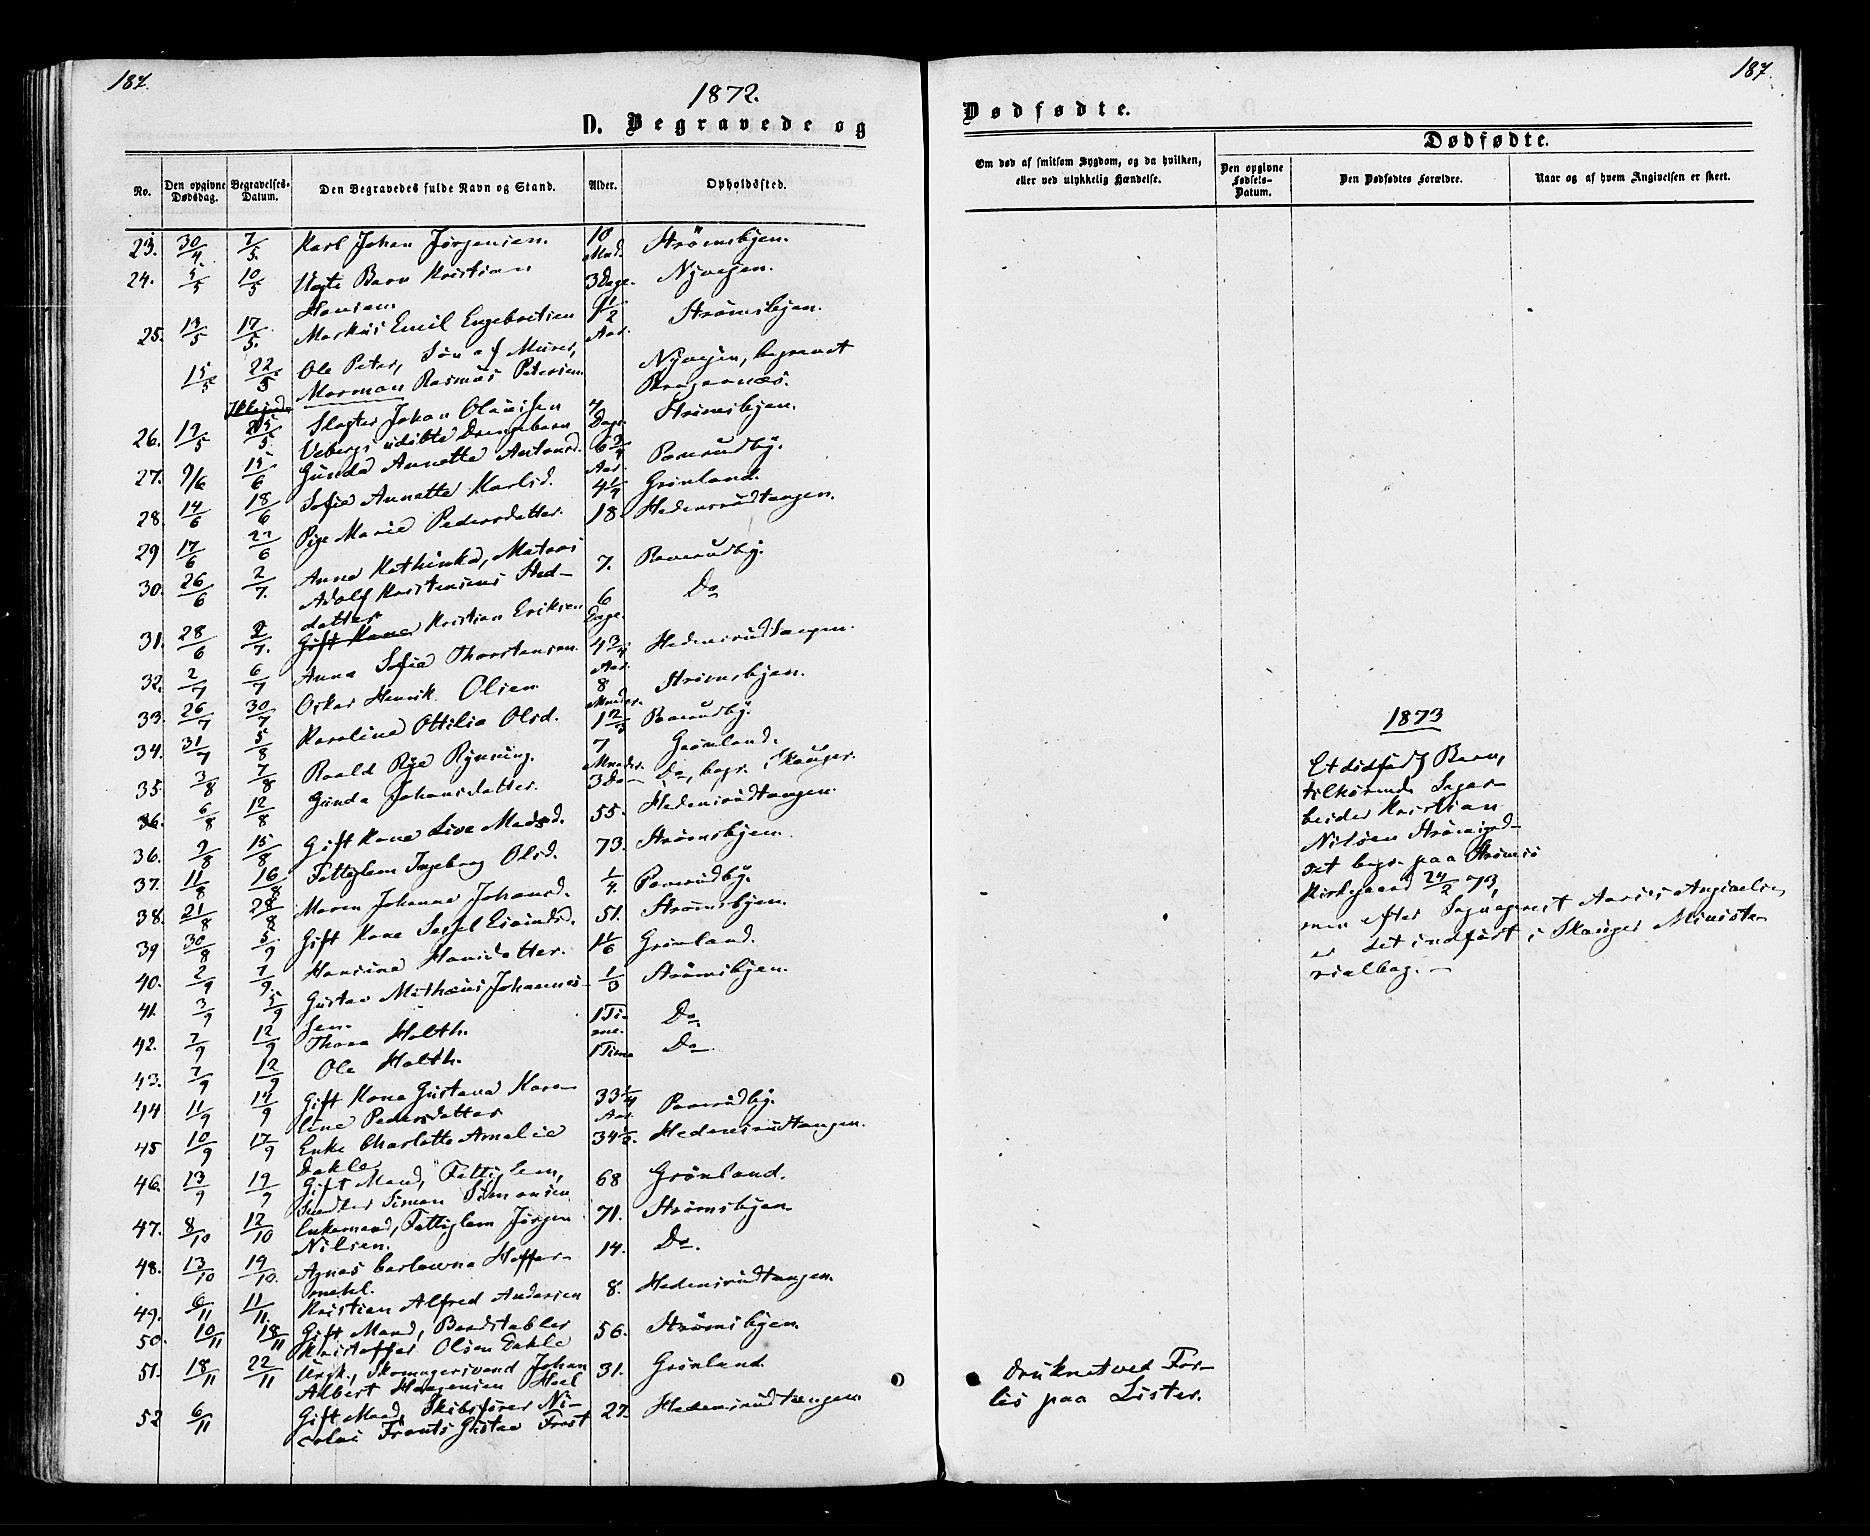 187.
187.
1872.
D. Begravede og
Dødfødte.
No.
Den opgivne Dødsdag.
Begravelses-Datum.
Den Begravedes fulde Navn og Stand.
Alder.
Opholdssted.
Om død af smitsom Sygdom, og da hvilken, eller ved ulykkelig Hændelse.
Dødfødte.
Den opgivne Fødsels-Datum.
Den Dødfødtes Forældre.
Naar og af hvem Angivelsen er skeet.
23. 30/4 7/5 Karl Johan Jørgensen. 10 Mnd. Strömsbyen.
24. 5/5 10/5 Uægte Barn Kristian Hansen 3 Dage. Nyvejen.
25. 13/5 17/5. Markus Emil Engebretsen 1/2 Aar. Strömsbyen.
15/5 22/5 Ole Peter, Søn af Murer, Mormon Rasmus Petersen. Nyvejen, begravet Bragernæs.
26. 17/5 25/5 Slagter Johan Olausen Vebergs udöbte Drengebarn 4 Dage Strömsbyen.
27. 9/6 15/6 Gunda Annette Antonsd. 6 3/4 Aar. Pavesudby.
28. 14/6 18/6 Sofie Annette Karlsd. 4 1/4 Grönland.
29 17/6 22/6 Pige Marie Pedersdatter. 18. Hedensrudtangen.
30. 26/6 2/7. Anna Kathinka, Matros Adolf Kristensens Stedatter 7. Pavesudby.
31. 28/6 2/7. Gift Kone Kristian Eriksen 6 Dage. Do
32. 2/7 6/7 Anna Sofie Thorstensen. 4 3/4 Aar. Hedensrudtangen.
33. 26/7 30/7 Oskar Henrik Olsen. 8 Mnder. Strömsbyen.
34. 31/7 5/8 Karoline Ottilia Olsd. 1 2/3 Pavesudby.
35. 3/8 7/8 Roald Rye Rynning. 7 Mnder. Grönland.
36. 6/8 12/8 Gunda Johansdatter. 3 Do Do, begr. i Skauger.
36. 9/8 15/8 Gift Kone Live Madsd. 55. Hedensrudtangen.
37. 11/8 16/8 Fattiglem Ingeborg Olsd. 73. Strömsbyen.
38. 21/8 28/8 Maren Johanne Johansd. 1/4. Pavesudby.
39 30/8 5/9 Gift Kone Sissel Eivindsd. 51. Strömsbyen.
40. 2/9 7/9. Hansine Hansdatter. 1 1/6 Grönland.
41. 3/9 5/9 Gustav Mathæus Johannessen. 1/3 Strömsbyen.
42. 7/9 12/9 Thora Holth. 1 Time. Do
43. 7/9 12/9 Ole Holth. 1 Time Do
44 11/9 14/9 Gift Kone Gustava Karoline Pedersdatter 33 1/4 Aar. Pavesudby.
45 10/9 17/9 Enke Charlotte Amalie Dahler 34 1/2. Hedensrudtangen.
46. 13/9 19/9 Gift Mand, Fattiglem, Simon Simonsen 68 Grönland.
47. 8/10 12/10 Enkemand, Fattiglem Jørgen Nilsen. 71. Strömsbyen.
48. 13/10 19/10. Agnes 14. Do.
49. 6/11 11/11. Kristian Alfred Andersen 8. Hedensrudtangen.
50. 10/11 18/11 Gift Mand, Bordstabler Kristoffer Olsen Dahle 56. Strömsbyen.
51. 18/11 22/11 Ungk., Skomagersvend Johan Albert Haagensen Hoel 31. Grönland.
52 6/11 Gift Mand, Skibsfører Nicolai Frants Gustav Frost 27. Hedensrudtangen
Druknet ved Forlis paa Lister.
1873
Et dødfødt Barn,
tilhörende Sagarbeider
Kristian
Nilsen Strömsgodset
begr. paa Strömsö
Kirkegaard 24/2 1873,
men efter Sogneprest Aars's Angivelse
er det indført i Skauger Ministerialbog.